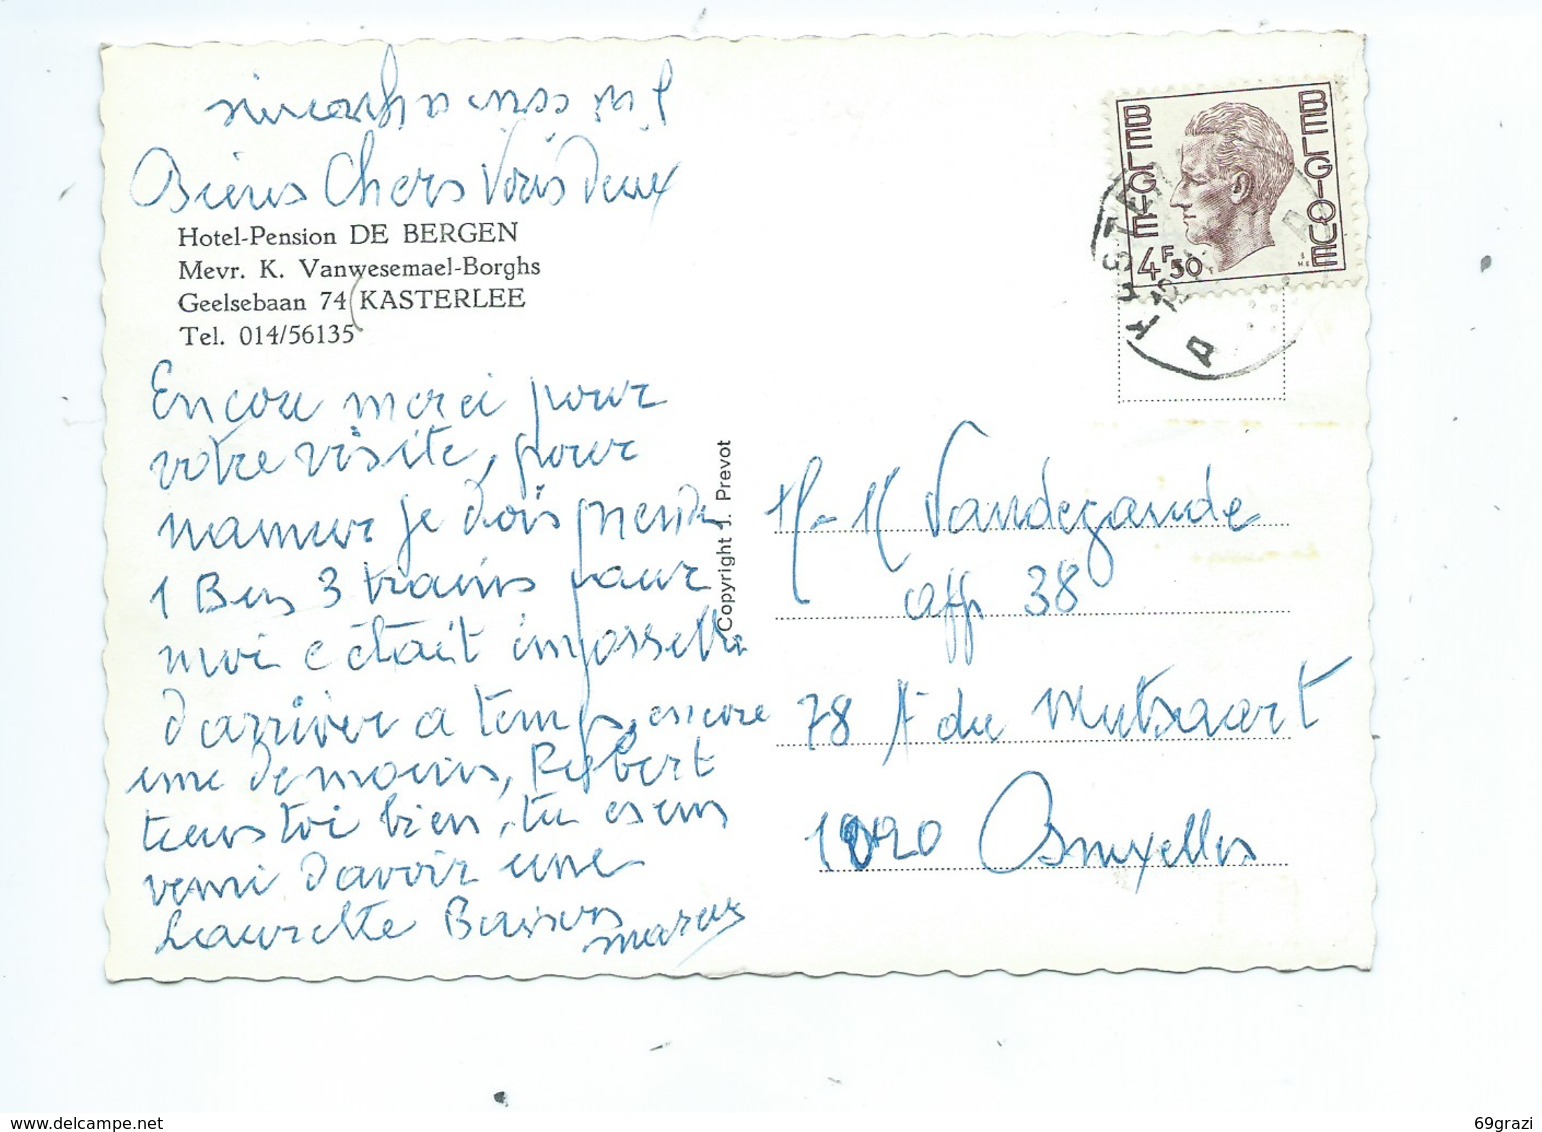 Biens Chers Vous Deux
Hotel-Pension DE BERGEN
Mevr. K. Vanwesemael-Borghs
Geelsebaan 74 KASTERLEE
Tel. 014/56135
Encore merci pour
votre visite, pour
namur je dois prendre
1 Bus 3 trains pour
moi c était impossible
d'arriver a temps, encore
une demains, Robert
tiens toi bien, tu
venir d'avoir une
Laurette Baisers
Copyright J. Prevot
BELGIE BELGIQUE
4F50
Vandegande
app 38
78 du Mutsaert
1020 Bruxelles
69grazi